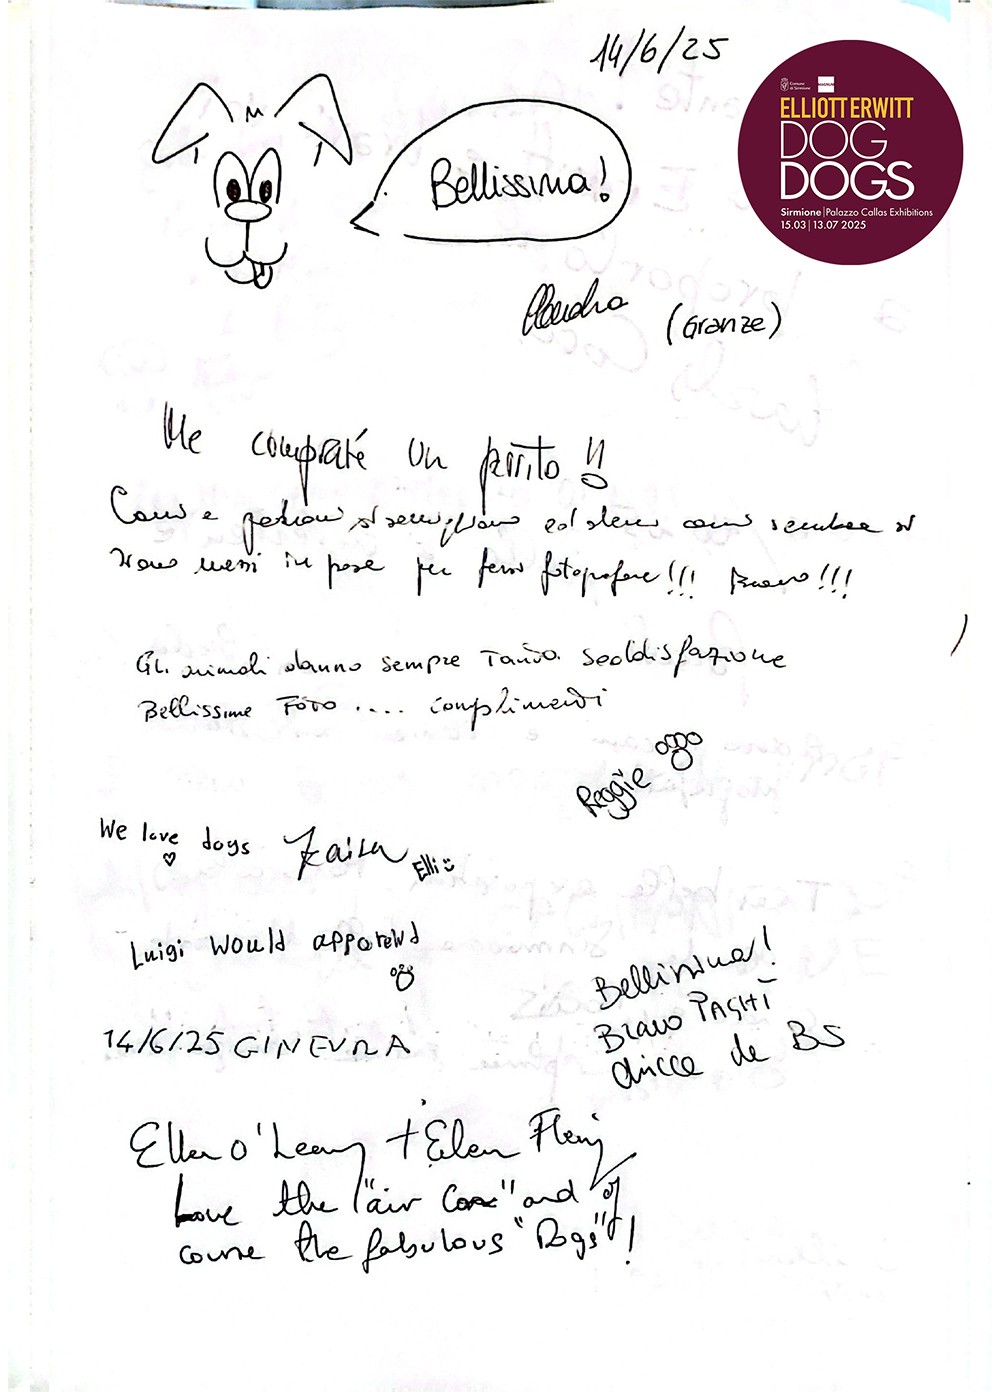 14/6/25
Comune
di Sirmione
MAGNUM
ELLIOTT ERWITT
DOG
DOGS
Sirmione | Palazzo Callas Exhibitions
15.03 | 13.07 2025
Bellissima!
Claudia (Granze)
Me compraté un perrito !!
Cani e padroni si somigliano ed stessi cani sembra si
siano messi in posa per farsi fotografare!!! Bravo!!!
Gli animali danno sempre Tanta soddisfazione
Bellissime Foto .... complimenti
Reggie
We love dogs Zaira Elli
Luigi would apparewd
Bellissima!
Bravo
de BS
14/6/25 GINEVRA
Ellen O'Leary + Eileen
Love the "air Con" and of
course the fabulous "Dogs"!